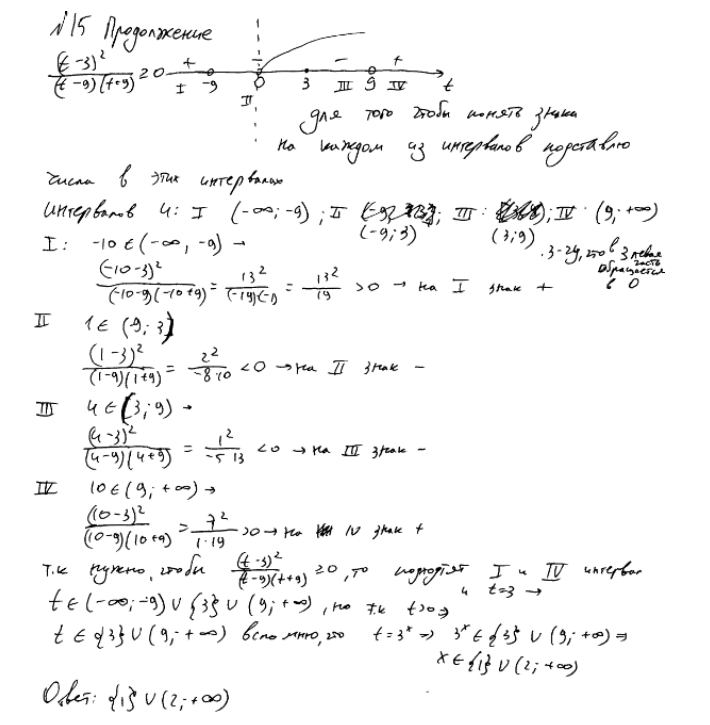 №15 Продолжение
(t-3)²/((t-9)(t+9)) ≥ 0
+ - - +
I -9 0 3 III 9 IV t
II
для того чтобы понять знаки
на каждом из интервалов подставлю
числа в этих интервалах
интервалов 4: I (-∞; -9); II (-9; 3); III: (3; 9); IV: (9; +∞)
I: -10 ∈ (-∞, -9) →
. 3-жды, в 3 левая часть обращается в 0
(-10-3)²/((-10-9)(-10+9)) = 13²/((-19)(-1)) = 13²/19 > 0 → на I знак +
II 1 ∈ (9; 3)
(1-3)²/((1-9)(1+9)) = 2²/(-8·10) < 0 → на II знак -
III 4 ∈ (3; 9) →
(4-3)²/((4-9)(4+9)) = 1²/(-5·13) < 0 → на III знак -
IV 10 ∈ (9; +∞) →
(10-3)²/((10-9)(10+9)) = 7²/(1·19) > 0 → на IV знак +
т.к нужно, чтобы (t-3)²/((t-9)(t+9)) ≥ 0, то подходят I и IV интервал
и t=3 →
t ∈ (-∞; -9) ∪ {3} ∪ (9; +∞), но т.к t>0 ⇒
t ∈ {3} ∪ (9; +∞) вспомню, что t = 3ˣ ⇒ 3ˣ ∈ {3} ∪ (9; +∞) ⇒
x ∈ {1} ∪ (2; +∞)
Ответ: {1} ∪ (2; +∞)